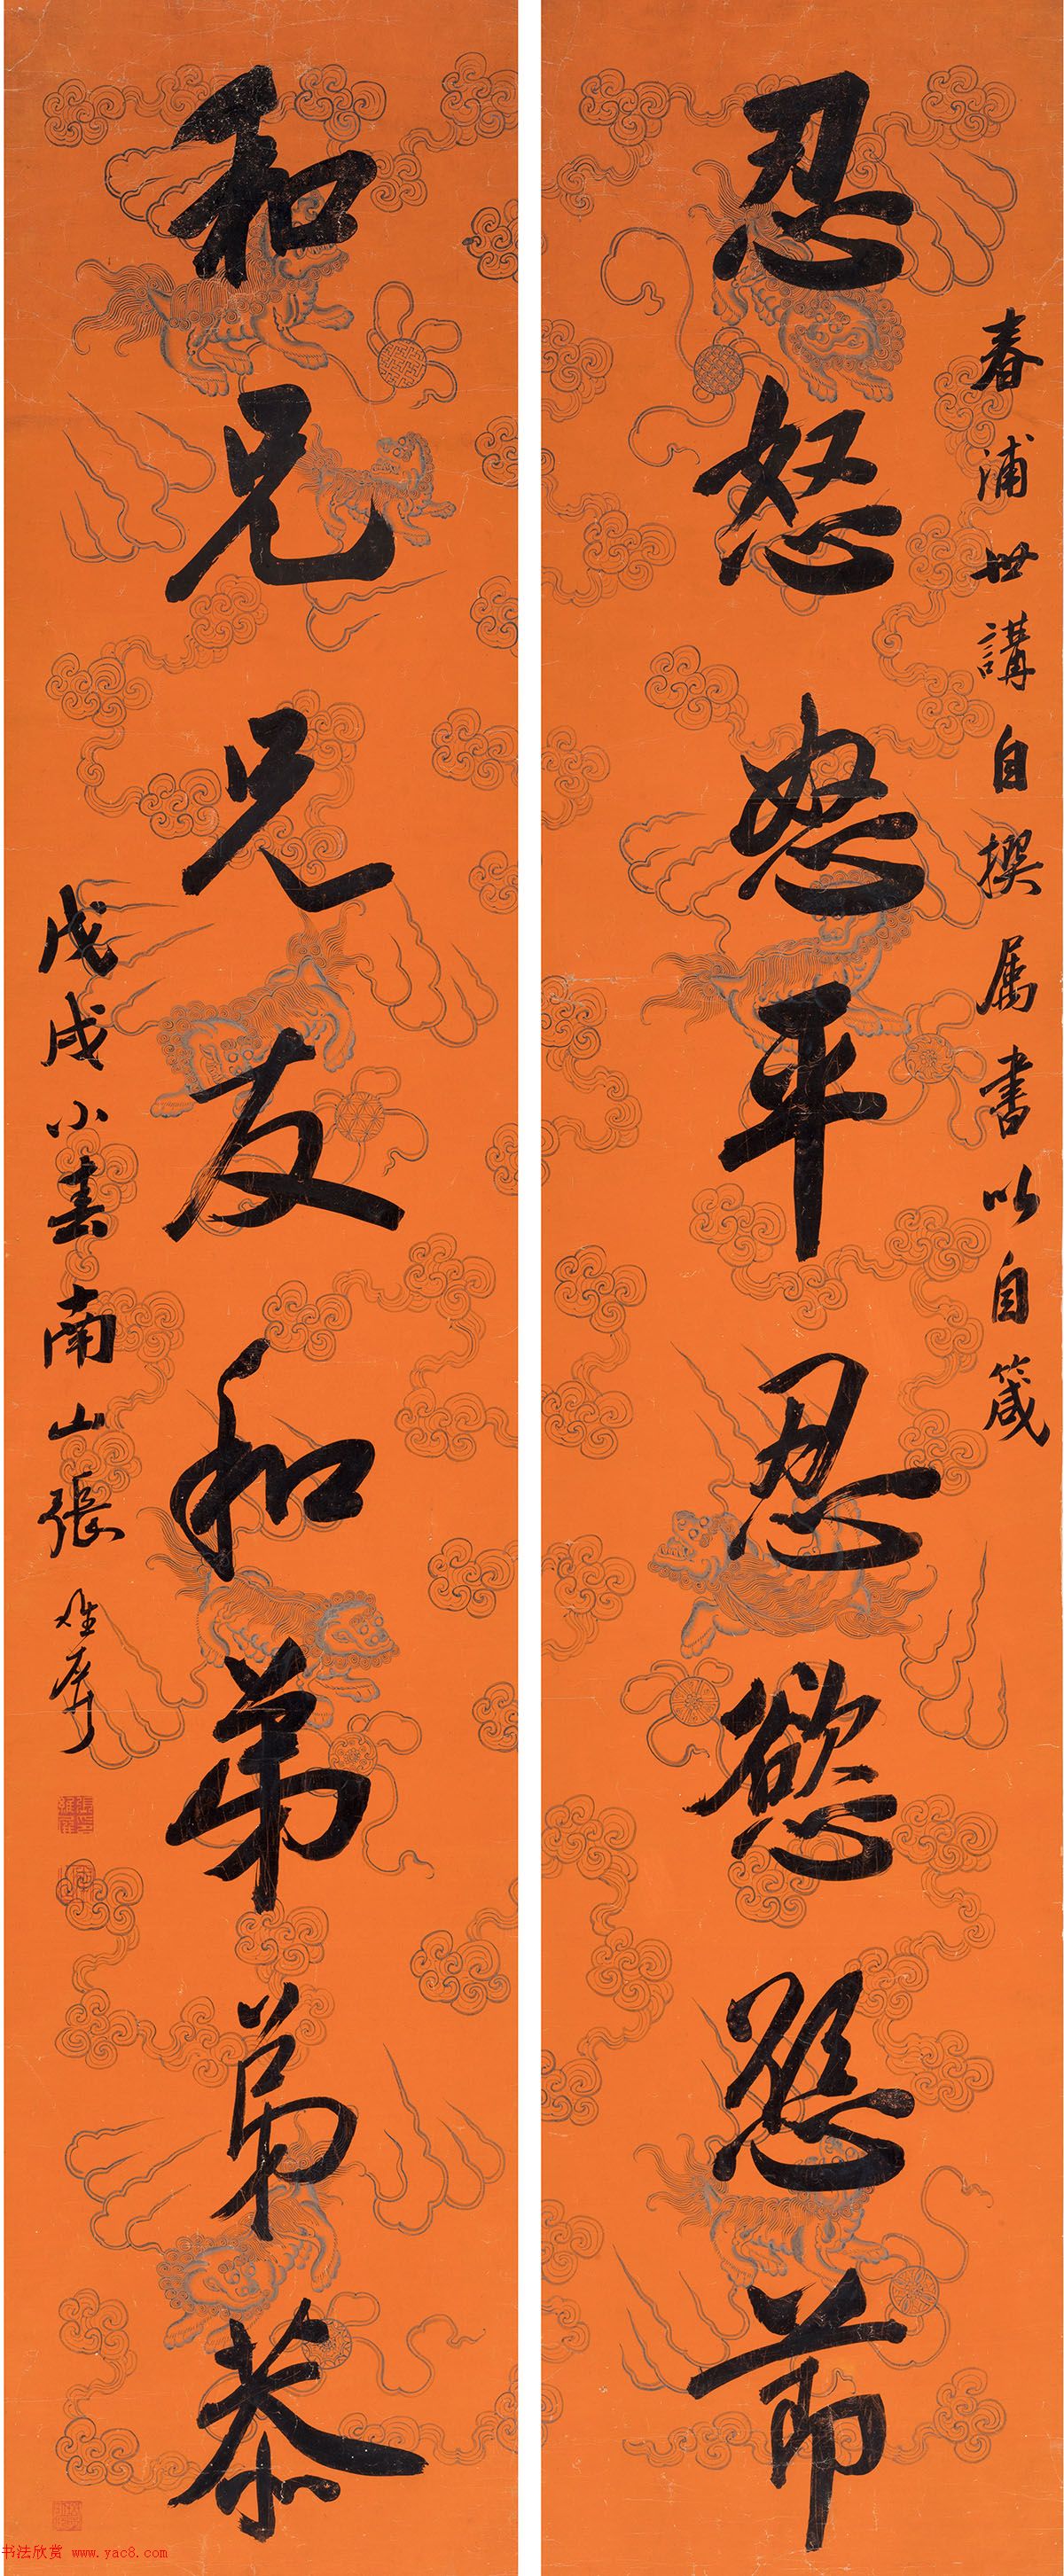 春浦世講自撰屬書以自箴
忍怒怒平忍慾慾節
和兄兄友和弟弟恭
戊戌小春南山張維屏
书法欣赏 www.yac8.com